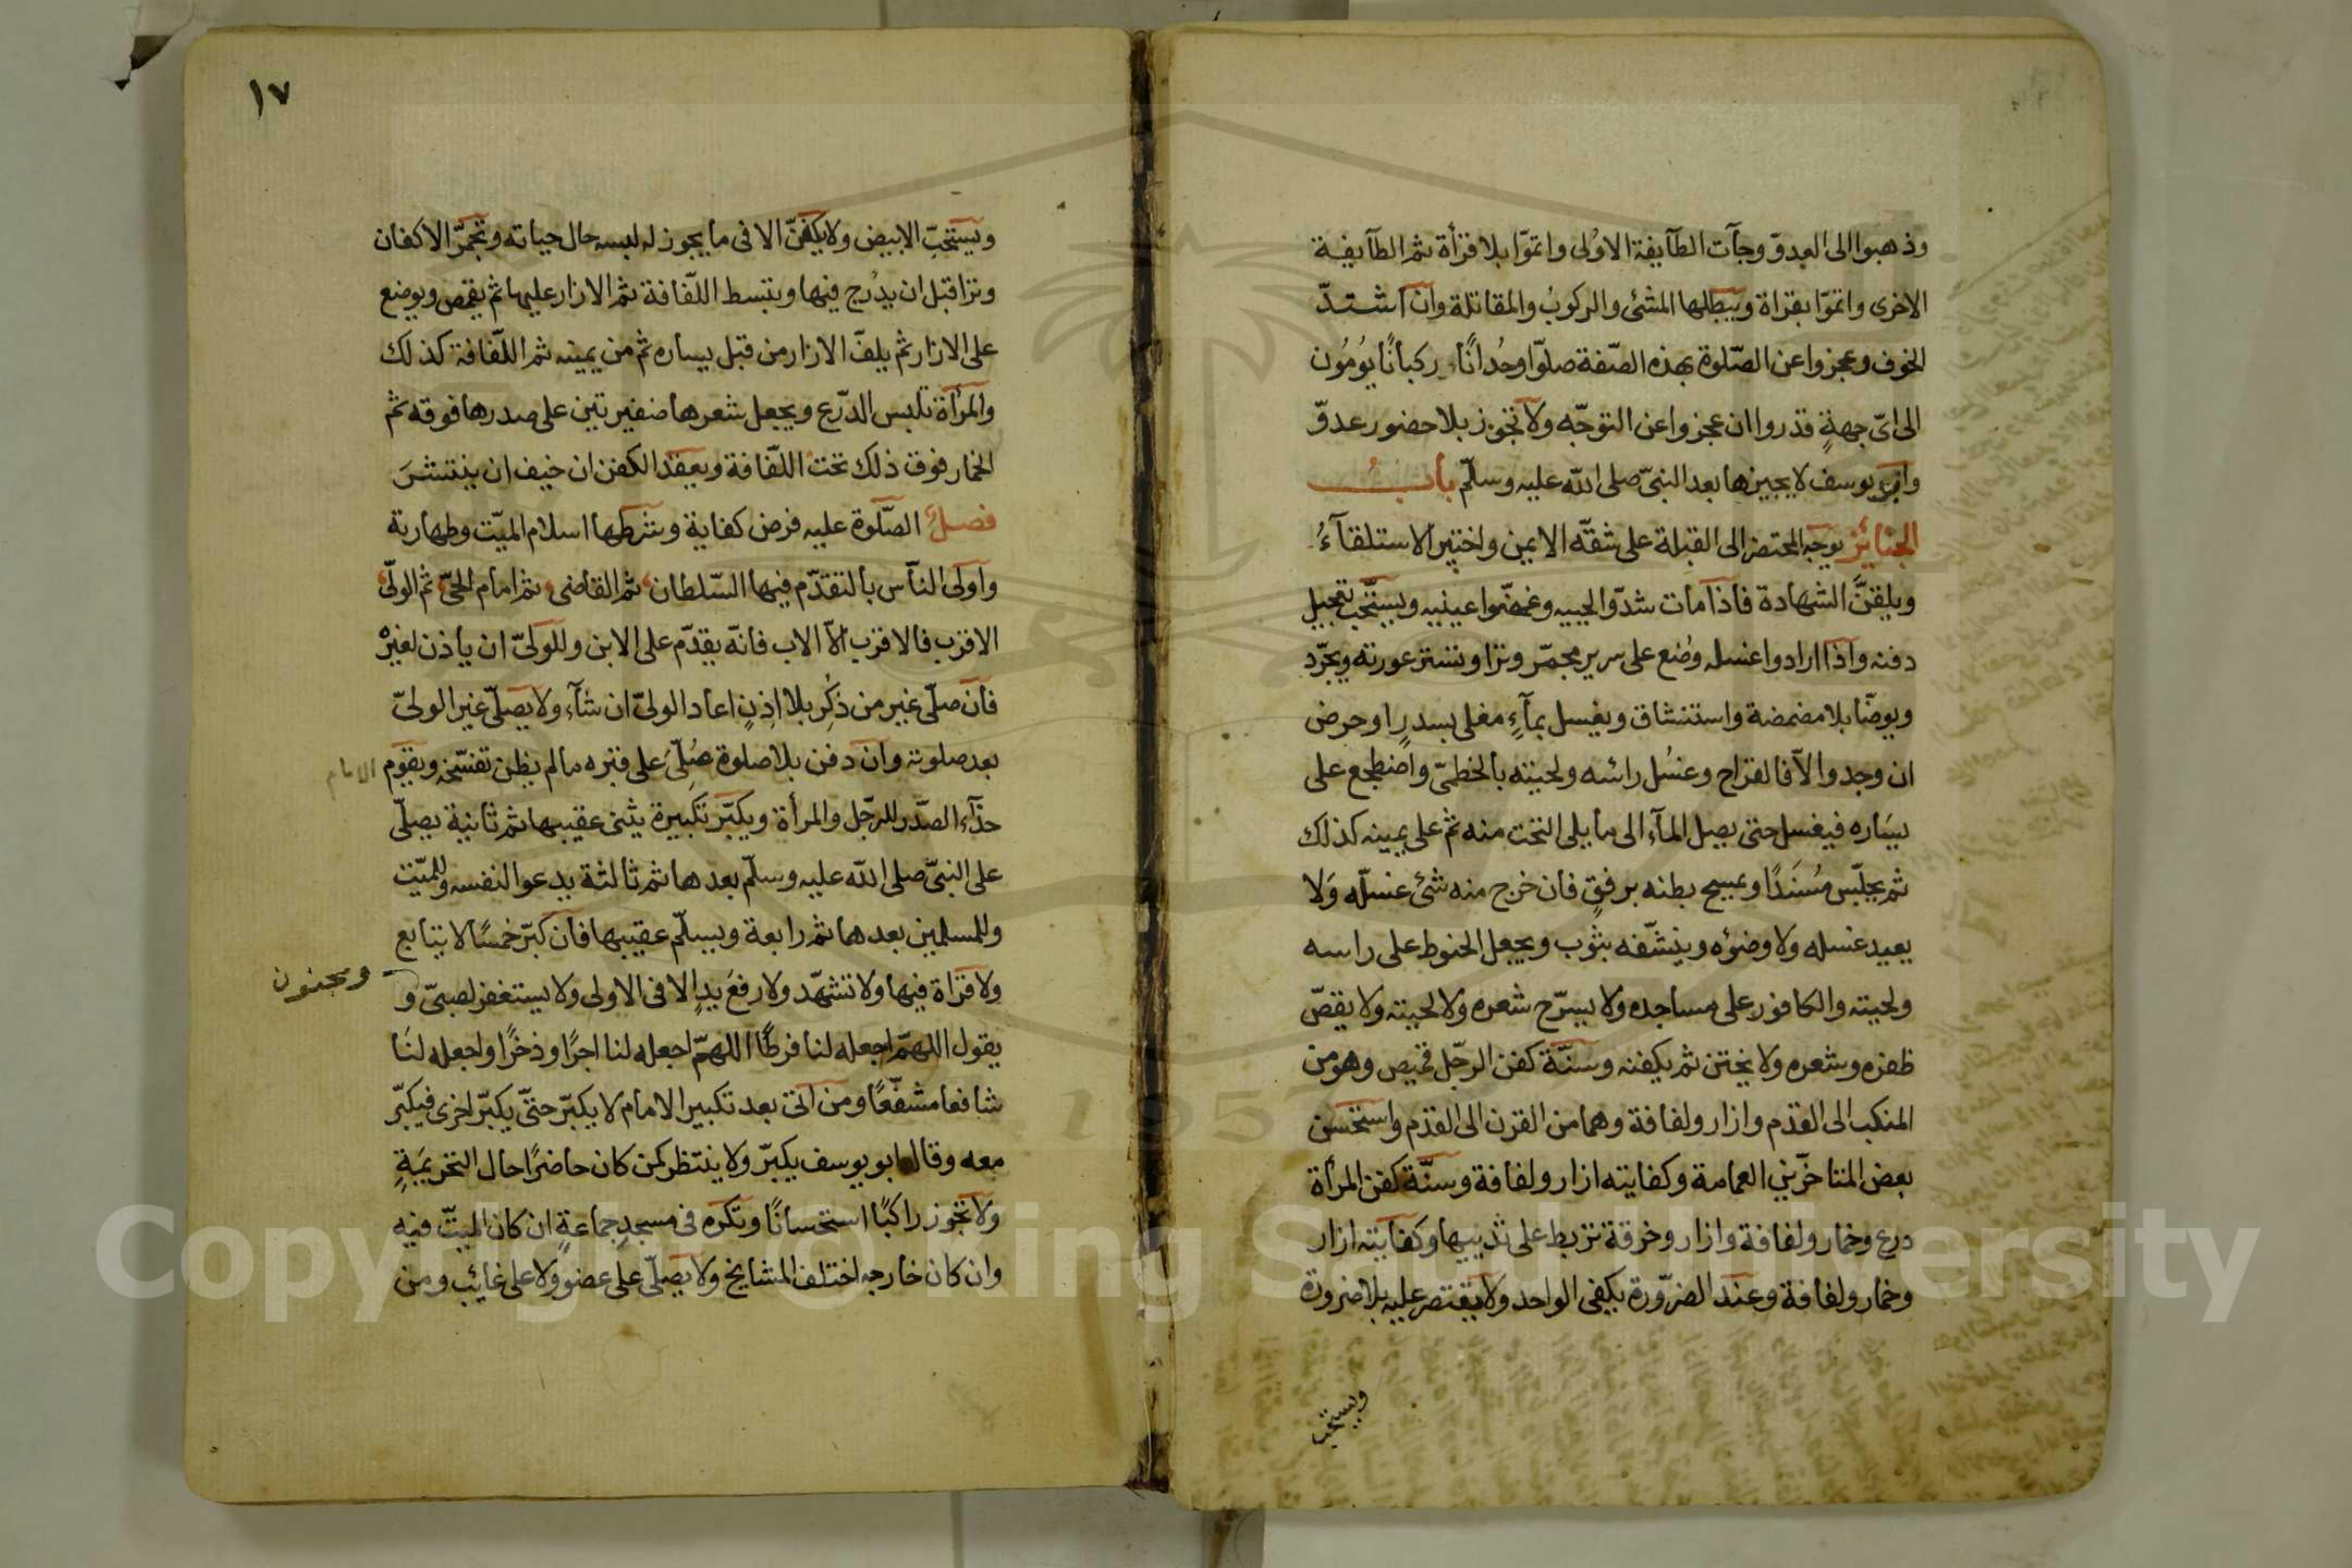 وذهبوا الى العدوّ وجآت الطآيفة الاولى واتمّوا بلا قرأة ثم الطآيفة
الاخرى واتمّوا بقراة ويبطلها المشى والركوبُ والمقاتلة وان اشتدّ
الخوف وعجزوا عن الصّلوة بهذه الصّفة صلوّا وُحْدانًا ركبانًا يُومُون
الى اىّ جهةٍ قدروا ان عجزوا عن التوجّه ولا تجوز بلا حضور عدوّ
وابو يوسف لا يجيزها بعد النبىّ صلى الله عليه وسلّم بابُ
الجنائز يوجه المحتضر الى القبلة على شقّه الايمن واختير الاستلقآءُ
ويلقنَّ الشهادة فاذا مات شدّوا لحييه وغمضّوا عينيه ويستحّب تعجيل
دفنه واذا ارادوا غسله وضع على سرير مجمّر وترا وتستر عورته ويجرّد
ويوضّا بلا مضمضة واستنشاق ويغسل بمآءٍ مغلى بسدرٍ او حرض
ان وجدوا الآ فالقراح وغسُل رائسه ولحيته بالخطمىّ واضطجع على
يسَاره فيغسل حتى يصل المآء الى ما يلى التخت منه ثم على يمينه كذلك
ثم يجلّس مُسنَدًا ويمسح بطنه برفقٍ فان خرج منه شئ غسلّه وَلا
يعيد غسله ولا وضوُه وينشّفه بثوب ويجعل الحنوط على راسه
ولحيته والكافور على مساجده ولا يسرّح شعره ولا لحيته ولا يقصّ
ظفره وشعره ولا يختن ثم يكفنه وسنّة كفن الرجّل قميص وهو من
المنكب الى القدم وازار ولفافة وهما من القرن الى القدم واستحسن
بعض المتاخّرين العمامة وكفايته ازار ولفافة وسنّة كفن المرأة
درع وخمار ولفافة وازار وخرقة تربط على ثدييها وكفايته ازار
وخمار ولفافة وعند الضرّورة يكفى الواحد ولا يقتصر عليه بلا ضرورة
ويستحب
١٧
ويستحبّ الابيض ولا يكفنّ الا فى ما يجوز له لبسه حال حياته وتجمّر الاكفان
وترا قبل ان يدُرج فيها وتبسط اللّفافة ثم الازار عليها ثم يقمص ويوضع
على الازار ثم يلفّ الازار من قبل يساره ثم من يمينه ثم اللّفافة كذلك
والمرأة تلبس الدرّع ويجعل شعرها ضفيرتين على صدرها فوقه ثم
الخمار فوق ذلك تحت اللّفافة ويعقد الكفن ان خيف ان ينتشرَ
فصل الصّلوة عليه فرض كفاية وشرطها اسلام الميّت وطهارته
واولى النآس بالتقدّم فيها السّلطان ثم القاضى ثم امام الحىّ ثم الولىّ
الاقرب فالاقرب الاّ الاب فانّه يقدّم على الابن وللولىّ ان يأذن لغيره
فان صلّى غير من ذُكِر بلا اذِنٍ اعاد الولىّ ان شآء ولا يصلّى غير الولىّ
بعد صلوته وان دفن بلا صلوة صُلّى على قبره ما لم يظن تفسّخه ويقوم الامام
حذآء الصدّر للرجّل والمرأة ويكبّر تكبيرة يثنى عقيبها ثم ثانية يصلّى
على النبىّ صلى الله عليه وسلّم بعدها ثم ثالثة يدعوا لنفسه وللميّت
وللمسلمين بعدها ثم رابعة ويسلّم عقيبها فان كبّر خمسًا لا يتابع
ولا قراة فيها ولا تشهّد ولا رفعَ يدٍ الا فى الاولى ولا يستغفر لصبىّ و ومجنون
يقول اللهمّ اجعله لنا فرطًا اللهمّ اجعله لنا اجرًا وذخرًا واجعله لنَا
شافعا مشفّعًا ومن اتى بعد تكبير الامام لا يكبّر حتىّ يكبّر اخرى فيكبّر
معه وقال ابو يوسف يكبّر ولا ينتظر كمن كان حاضرًا حال التحريمَةِ
ولا تجوز راكبًا استحسانًا وتكره فى مسجدِ جماعةٍ ان كان الميتّ فيه
وان كان خارجه اختلف المشايخ ولا يصلّى على عضو ولا على غائب ومن
Copyright © King Saud University